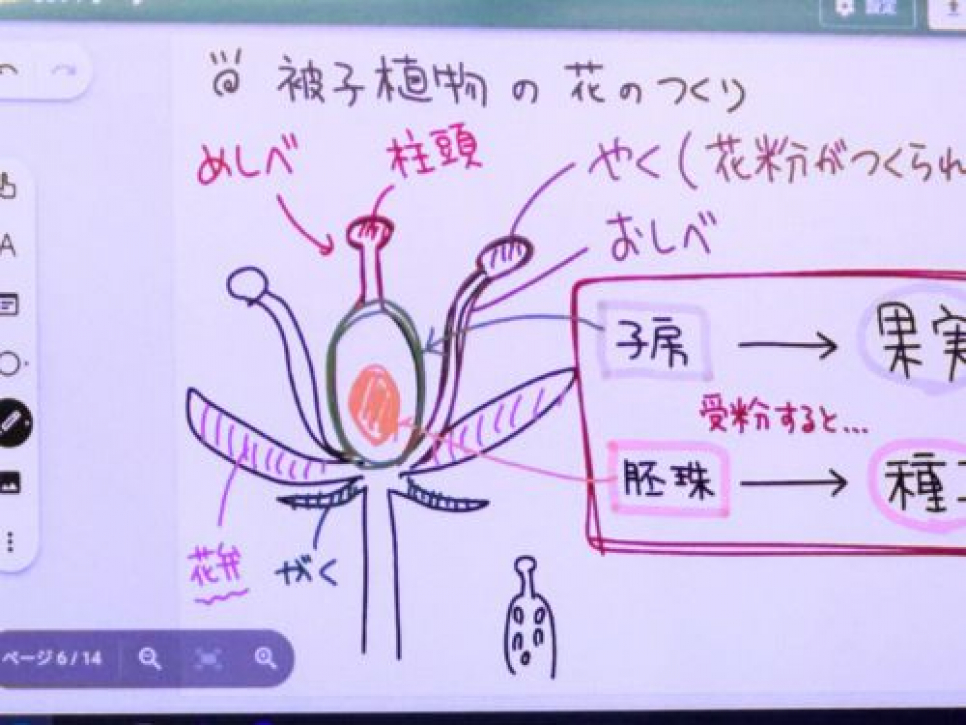 設定
被子植物の花のつくり
めしべ
柱頭
やく(花粉がつくられ
おしべ
子房 → 果実
受粉すると...
胚珠 → 種
花弁
がく
A
ページ 6 / 14